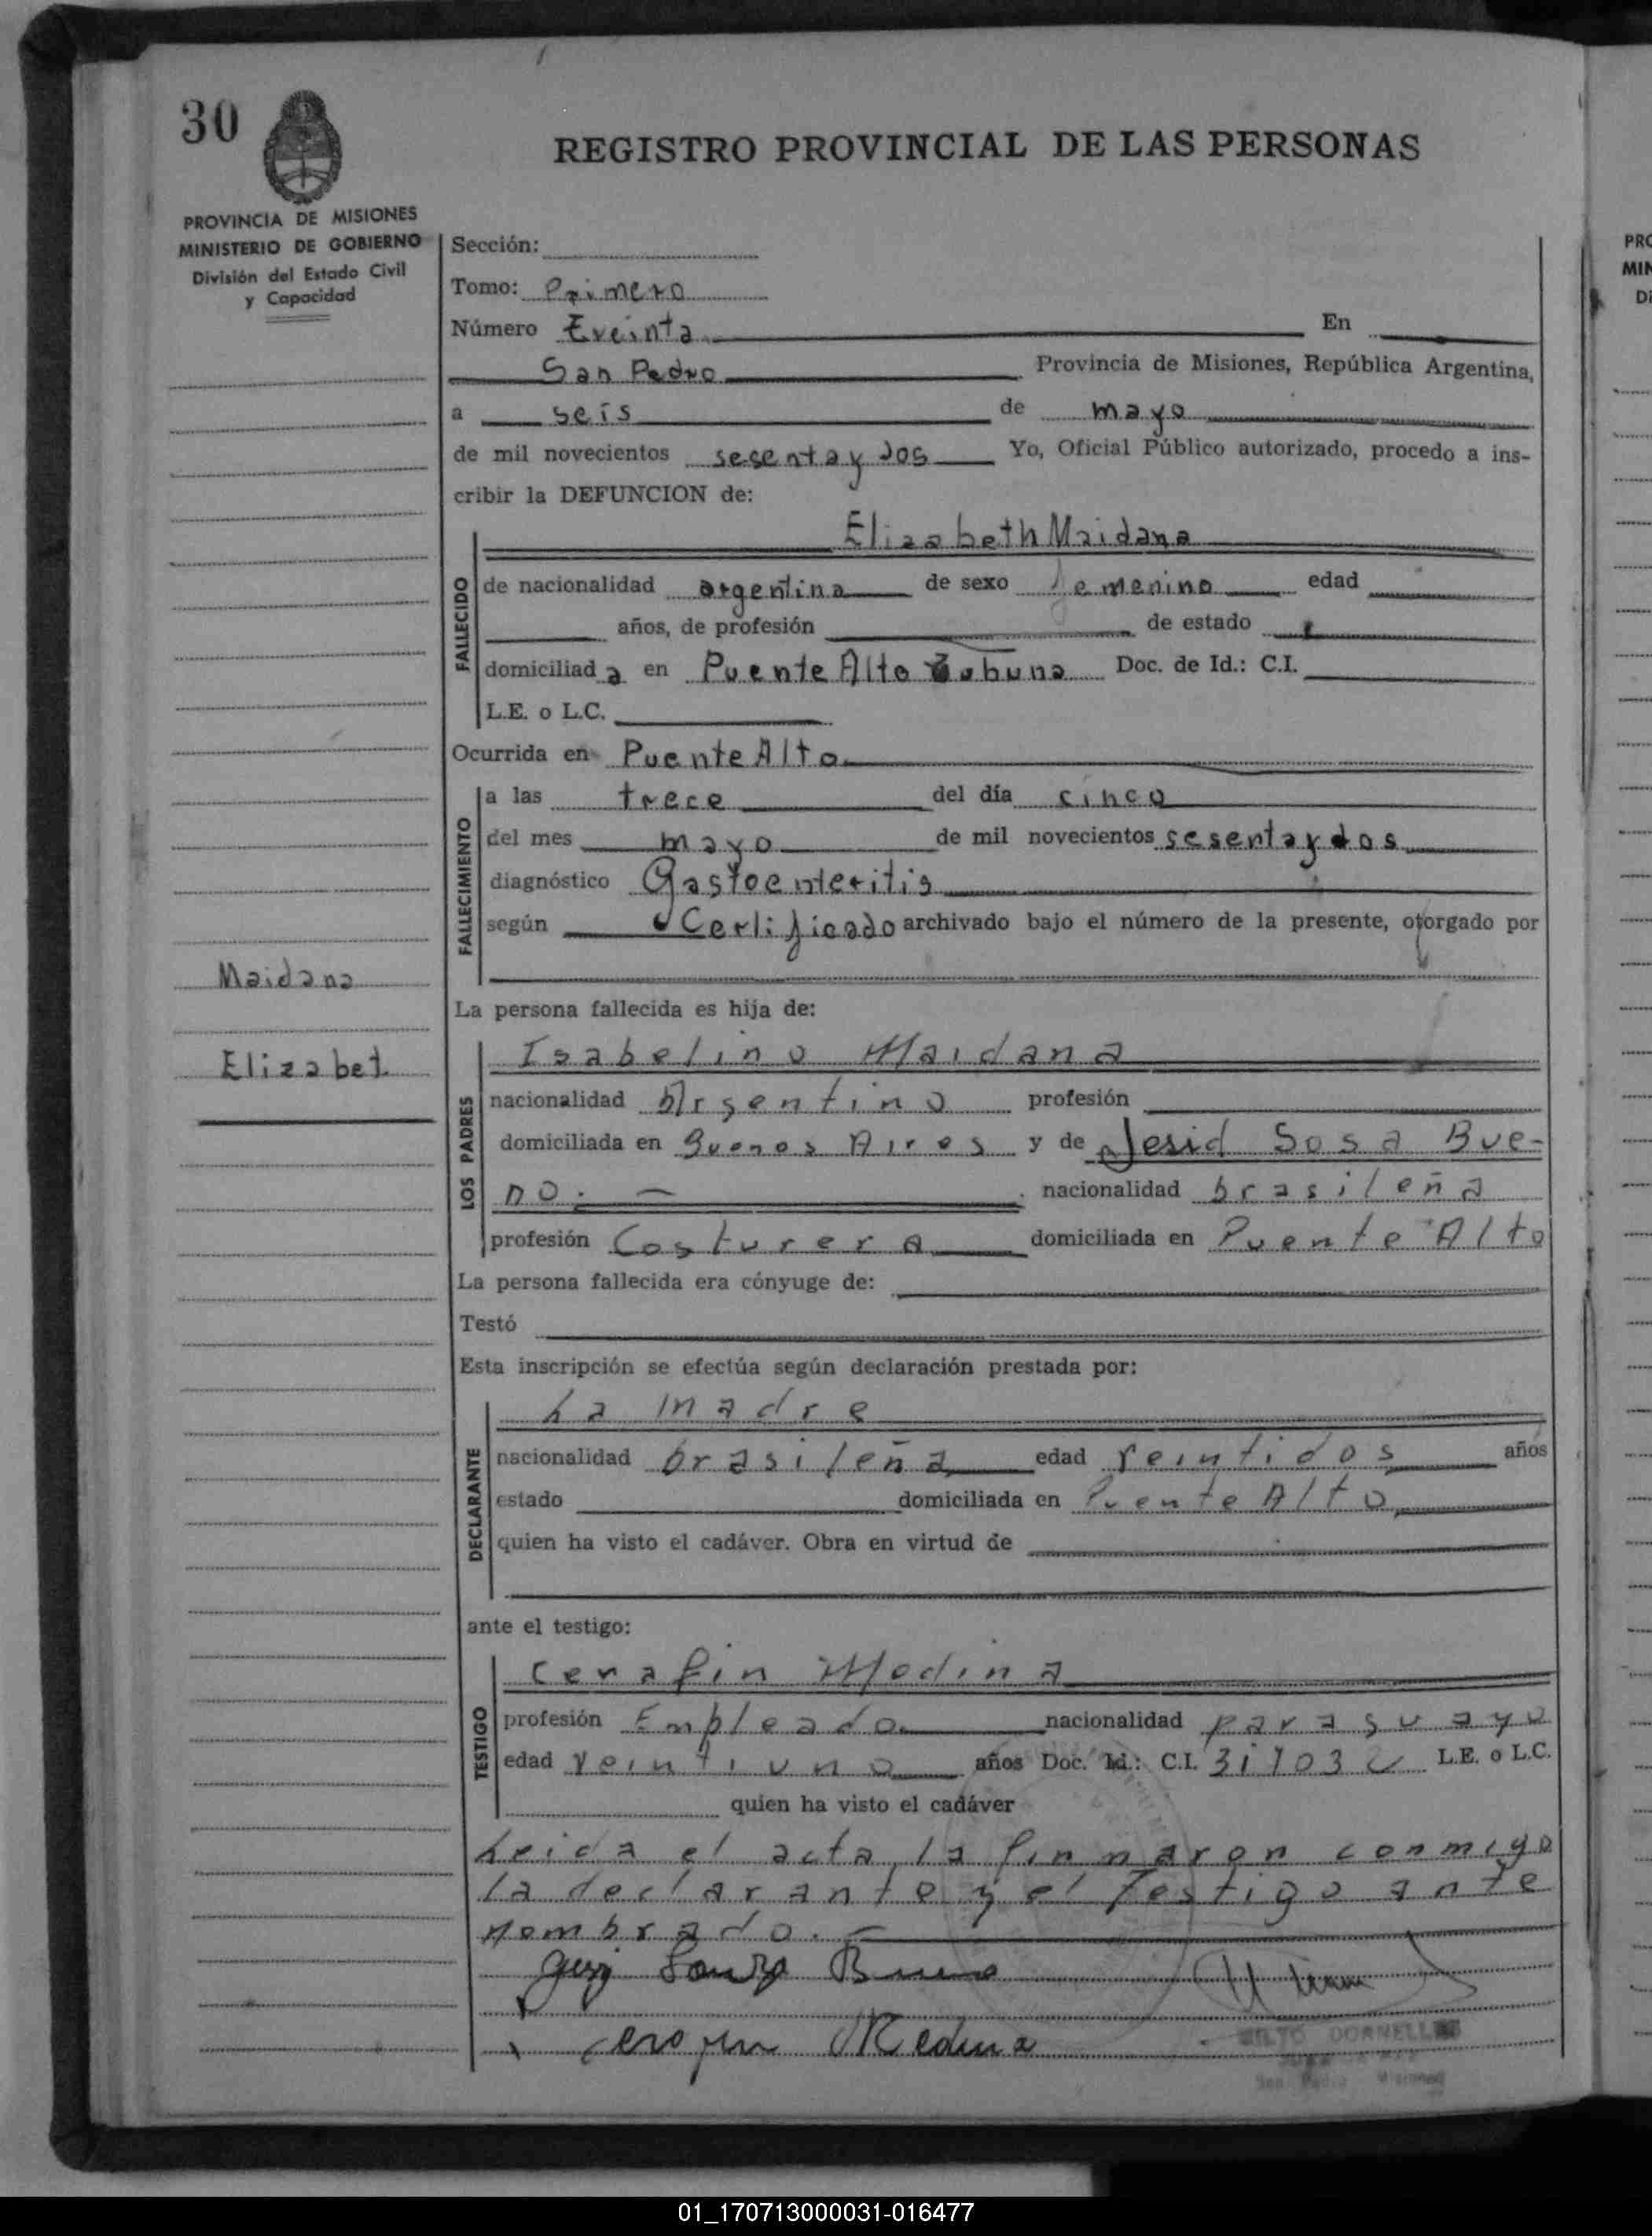 30
REGISTRO PROVINCIAL DE LAS PERSONAS
PROVINCIA DE MISIONES
MINISTERIO DE GOBIERNO
División del Estado Civil
y Capacidad
Sección:
Tomo: Primero
Número Treinta En
San Pedro Provincia de Misiones, República Argentina,
a seis de mayo
de mil novecientos sesenta y dos Yo, Oficial Público autorizado, procedo a ins-
cribir la DEFUNCION de:
Elizabeth Maidana
FALLECIDO
de nacionalidad argentina de sexo femenino edad
años, de profesión de estado
domiciliad a en Puente Alto Doc. de Id.: C.I.
L.E. o L.C.
Ocurrida en Puente Alto
FALLECIMIENTO
a las trece del día cinco
del mes mayo de mil novecientos sesenta y dos
diagnóstico Gastoenteritis
según Certificado archivado bajo el número de la presente, otorgado por
Maidana
Elizabet
La persona fallecida es hija de:
LOS PADRES
Isabelino Maidana
nacionalidad Argentino profesión
domiciliada en Buenos Aires y de Jesid Sosa Bue-
no. - nacionalidad brasileña
profesión Costurera domiciliada en Puente Alto
La persona fallecida era cónyuge de:
Testó
Esta inscripción se efectúa según declaración prestada por:
DECLARANTE
La madre
nacionalidad brasileña edad veintidos años
estado domiciliada en Puente Alto
quien ha visto el cadáver. Obra en virtud de
ante el testigo:
TESTIGO
Cerafin Medina
profesión Empleado nacionalidad paraguayo
edad veintiuno años Doc. Id.: C.I. L.E. o L.C.
quien ha visto el cadáver
Leida el acta, la firmaron conmigo
la declarante y el Testigo ante
nombrado. -
Souza Bueno
Cerafin Medina
MILTO DORNELLES
San Pedro Misiones
PRO
MIN
Di
01_170713000031-016477